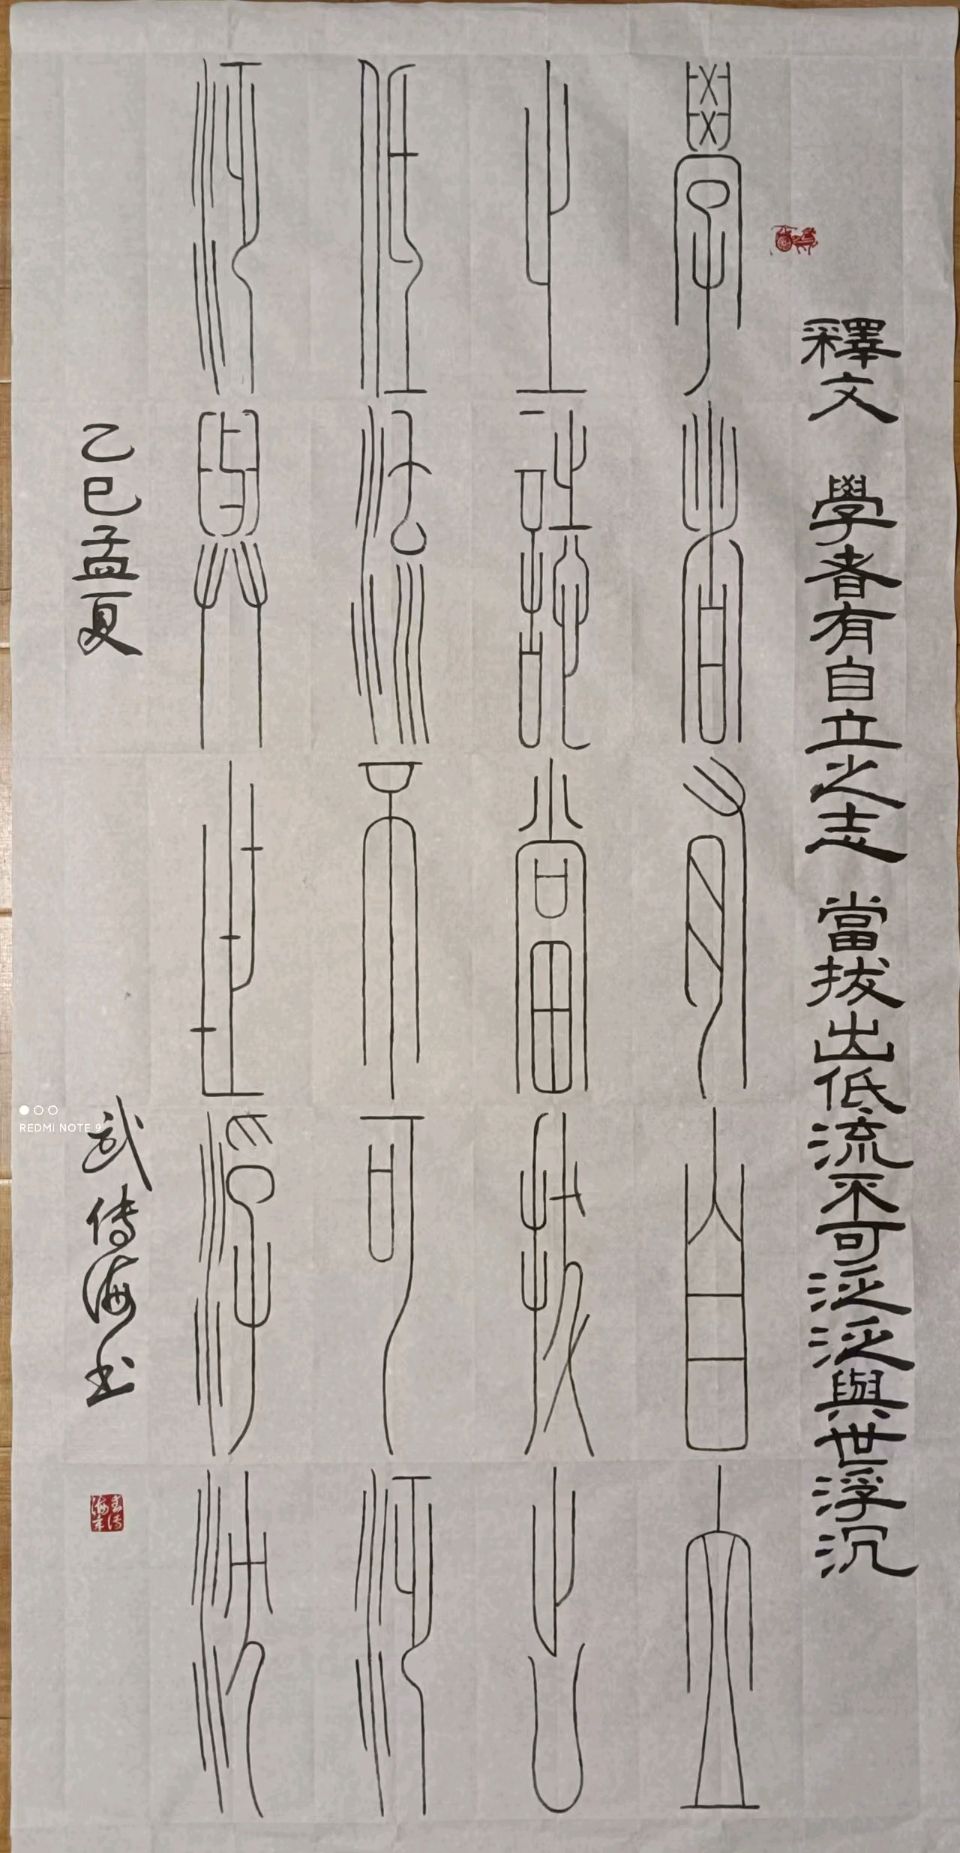 釋文 學者有自立之志 當拔出低流不可泛泛與世浮沉
學者有自立
之誌當拔出
低流不可泛
泛與世浮沉
乙巳孟夏 武传海书
REDMI NOTE 9